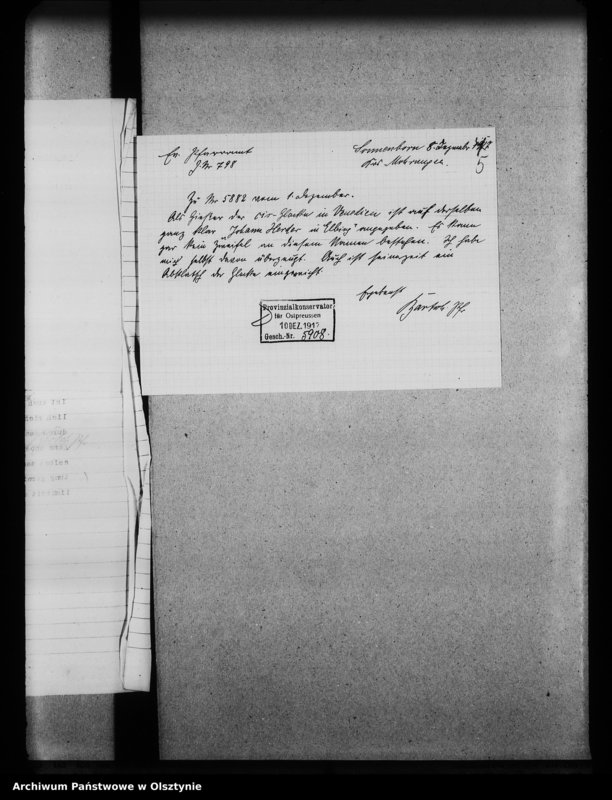 Ev. Pfarramt
J. Nr 798
Sonnenborn 8. Dezember
Krs Mohrungen.
5
Zu Nr 5882 vom 1. Dezember.
Als Gießer der Glocke in Venedien ist auf derselben
ganz klar "Johann Herter in Elbing" angegeben. Es kann
gar kein Zweifel an diesem Namen bestehen. Ich habe
mich selbst davon überzeugt. Auch ist seinerzeit ein
Abklatsch der Glocke eingereicht.
Ergebenst
Bartels Pf.
Provinzialkonservator
für Ostpreussen
10 DEZ. 1917
Gesch.-Nr. 5908.
Archiwum Państwowe w Olsztynie